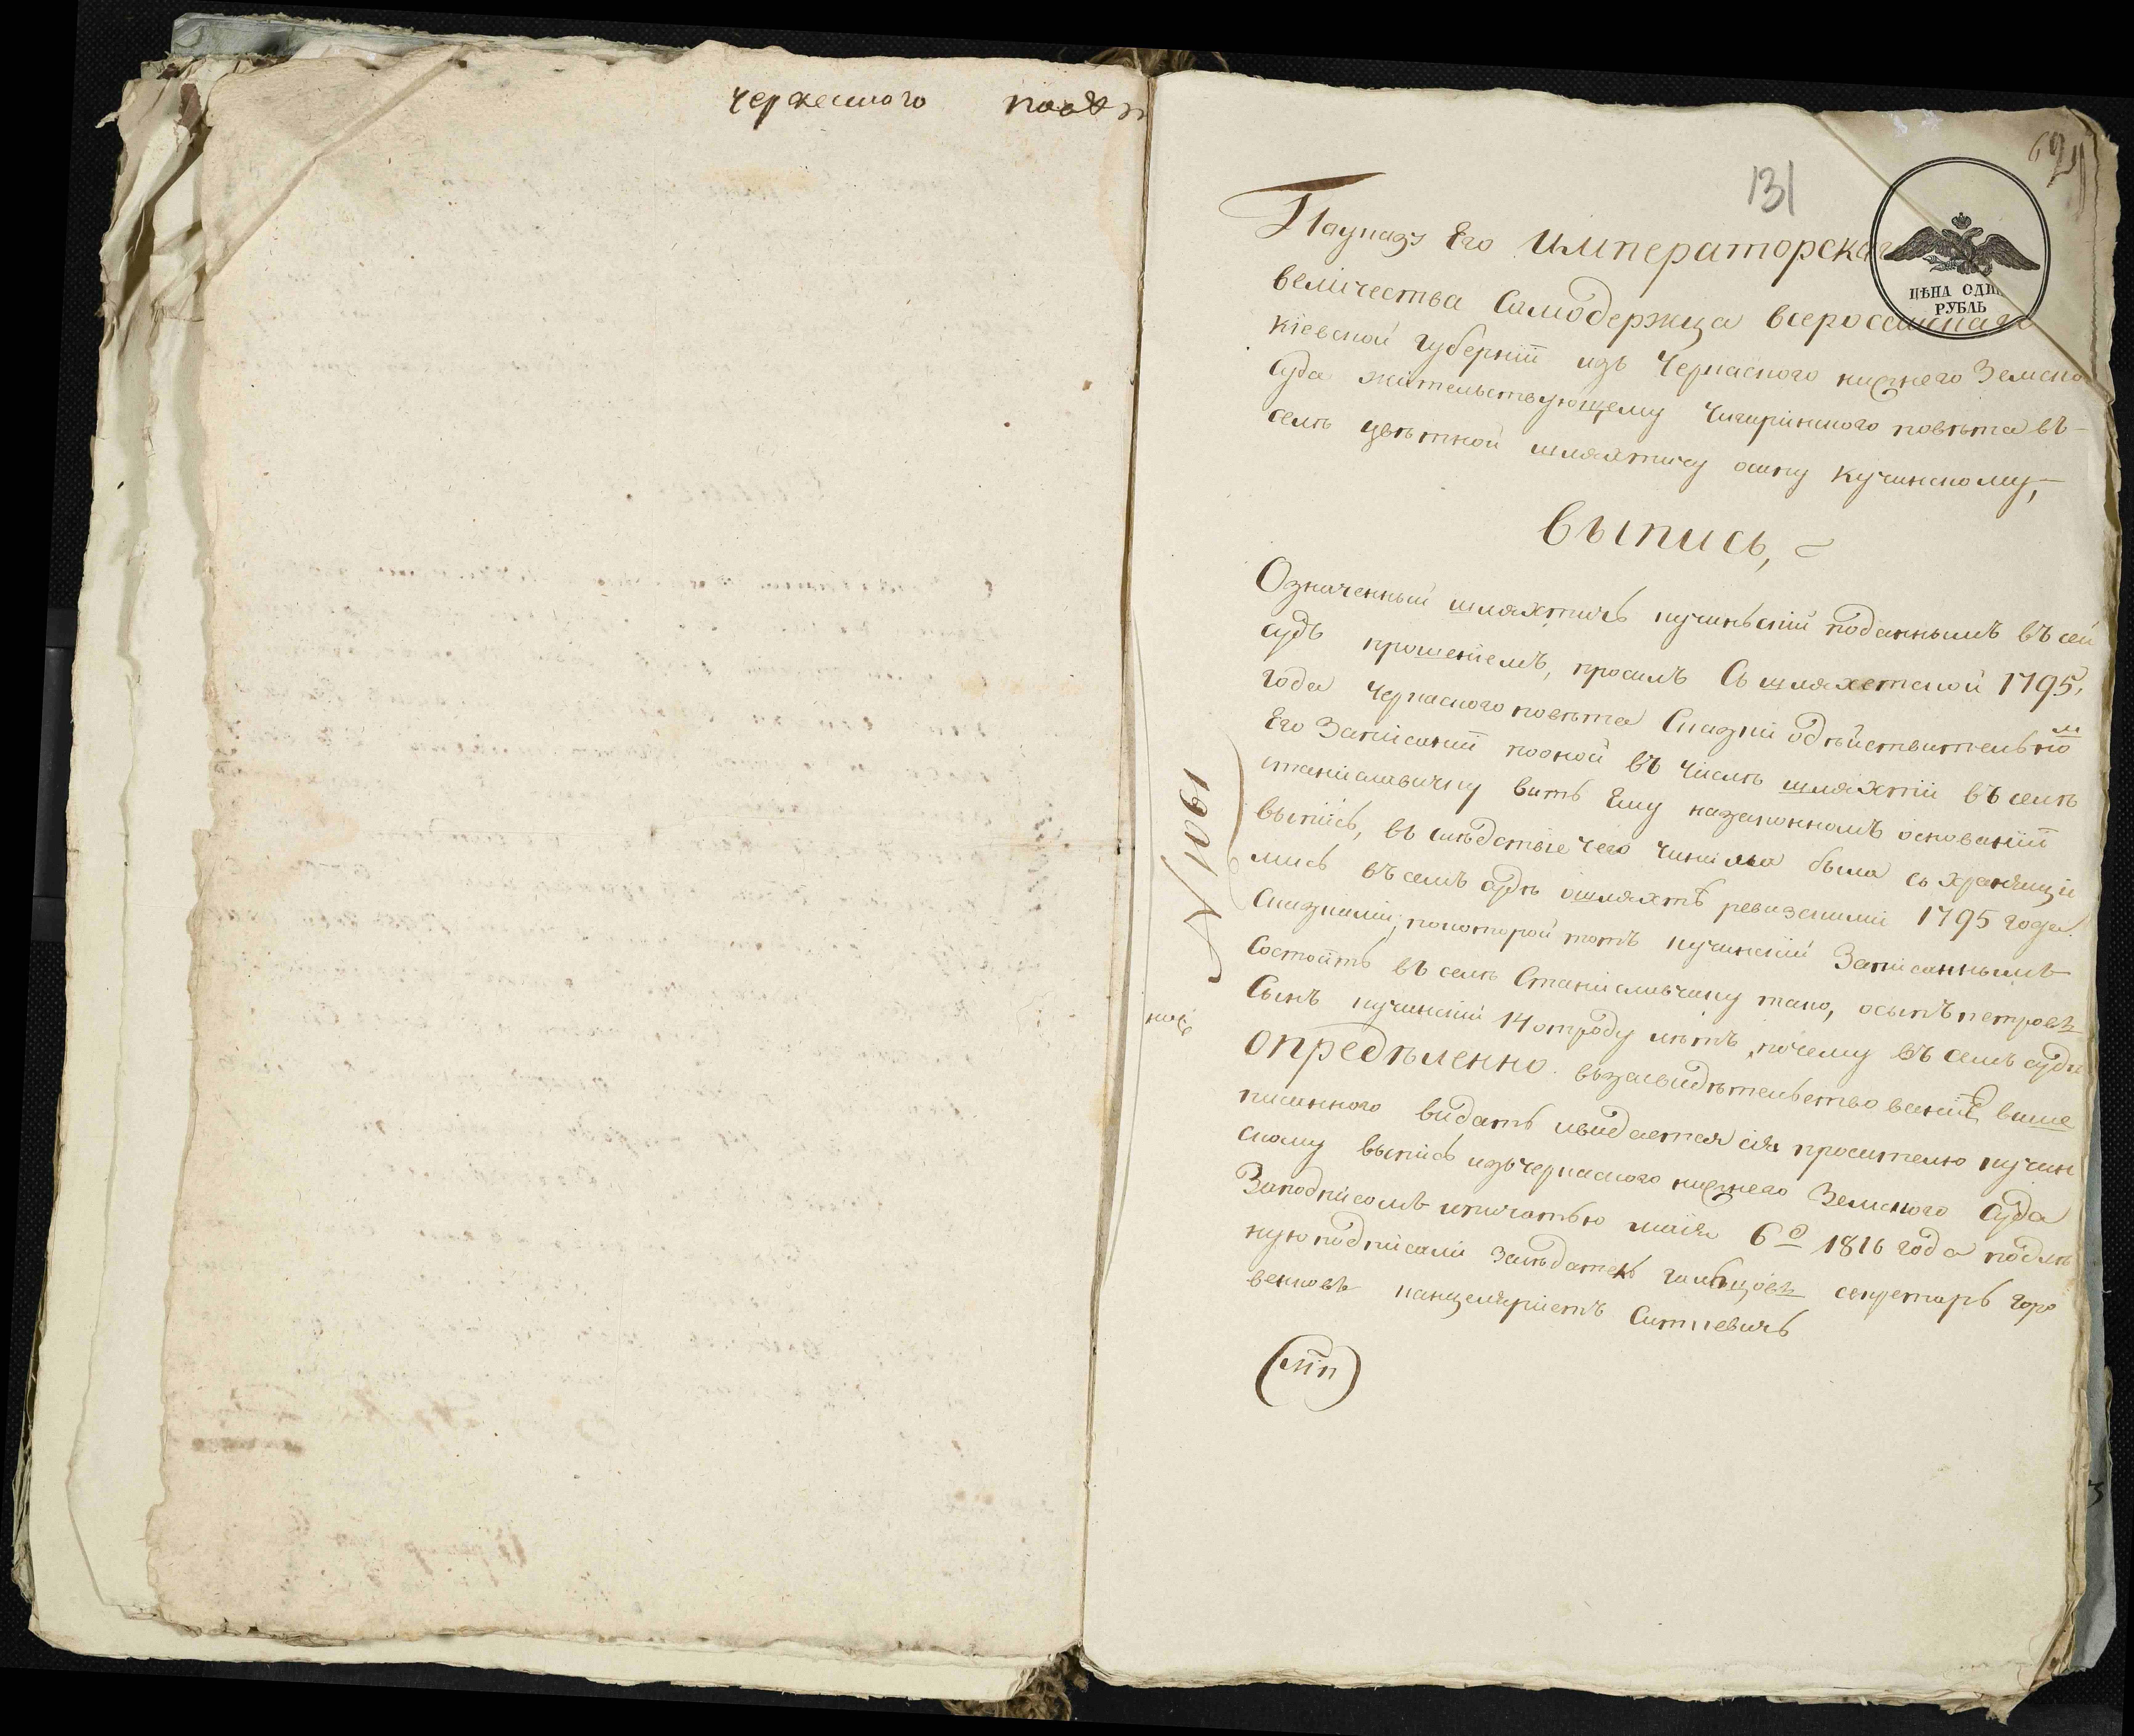 черкеского повѣт
131
62
ЦѢНА ОДИ
РУБЛЬ
Поуказу Его Императорскаго
величества Самодержца всероссийскаго
Кіевской губерніи изъ Черкаского нижнего Земско
Суда жительствующему Чигиринского повѣта въ
селѣ цвѣтной шляхтичу осипу Кучинскому,
Выпись,
Означенный шляхтичь кучиньскій поданнымъ въ сей
судъ прошеніемъ, просилъ Съ шляхетской 1795,
года Черкаского повѣта Сказки одѣйствительно
Его Записаніи по оной въ числѣ шляхтіи въ селѣ
станіславчику вить Ему назаконномъ основаніи
выпісь, въ слѣдствіе чего чинила была съ хранящи
мись въ семъ судѣ ошляхтѣ ревизскими 1795 года
Сказками, покоторой тотъ кучинскій Записаннымъ
Состоитъ въ селѣ Станіславчику тако, осыпъ петровъ
Сынъ кучинскій 14 отроду лѣтъ, почему въ семъ судѣ
опредѣленно взасвидѣтельствованіе више
писанного видать ивидается сія просителю кучин
скому выпісь изъ черкаского нижнего Земского Суда
Заподписомъ ипичатью маія 6го 1816 года подлѣ
ную подписали Засѣдатель гальцовъ секретарь горо
венковъ канцеляристъ Ситкевичь
(мп)
№ 1061